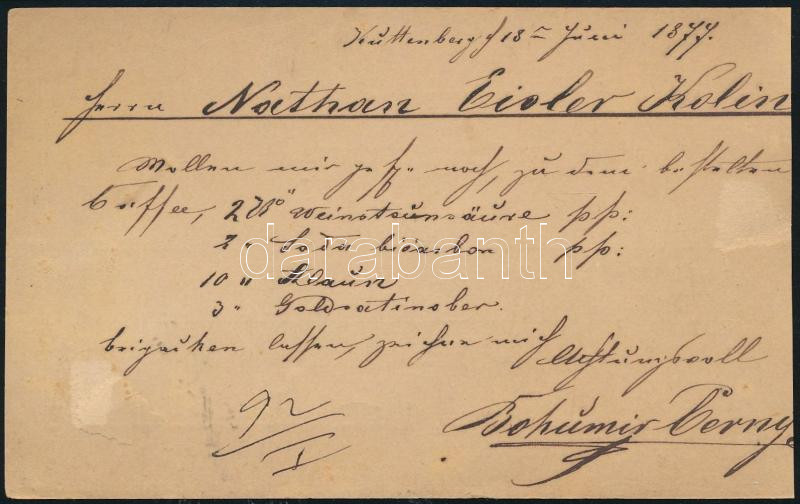 Kuttenberg 18 Juni 1877.
Herrn Nathan Eisler Kolin
Wollen mir gefl. noch, zu dem bestellten
Caffee, 2 Ko Weinsteinsäure pp:
2 " Soda bicarbon pp:
10 " Alaun
3 " Goldsatinober.
beipacken lassen, zeichne mich
Achtungsvoll
Bohumir Cerny
92/I
darabanth